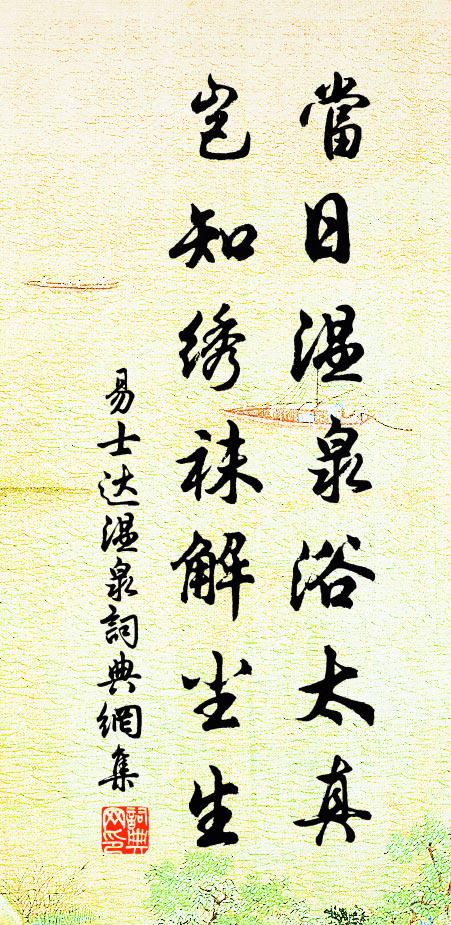 當日温泉浴太真
岂知绣袜解尘生
易士达温泉詞典網集
詞典
网印